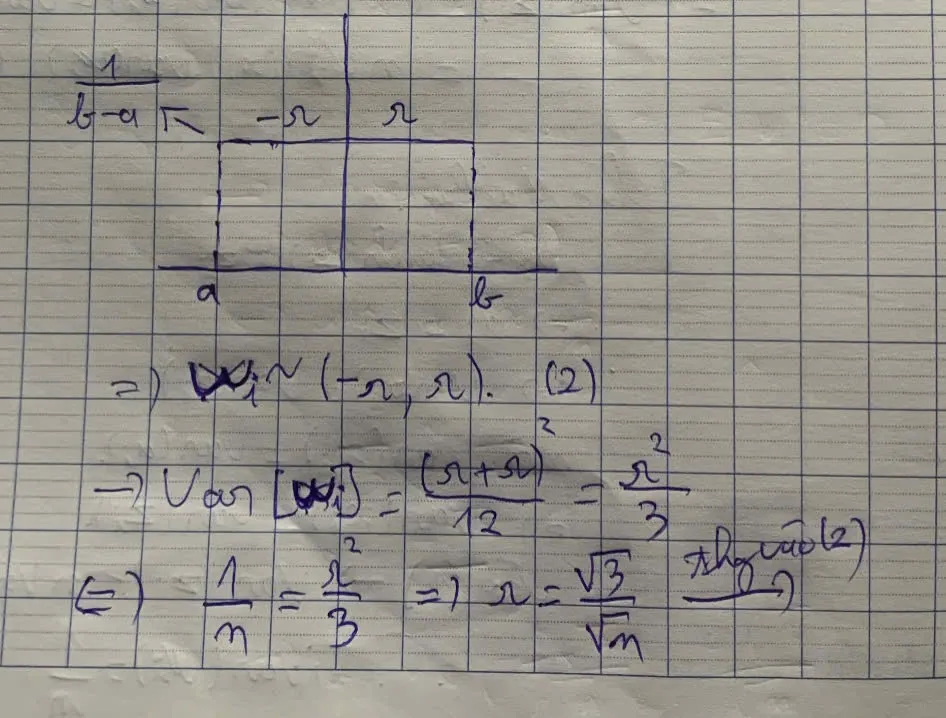 1/(b-a)
-r r
a b
=> Wi ~ (-r, r). (2)
-> Var [Wi] = (r+r)²/12 = r²/3
<=> 1/n = r²/3 => r = √3/√n thay vào (2) ->